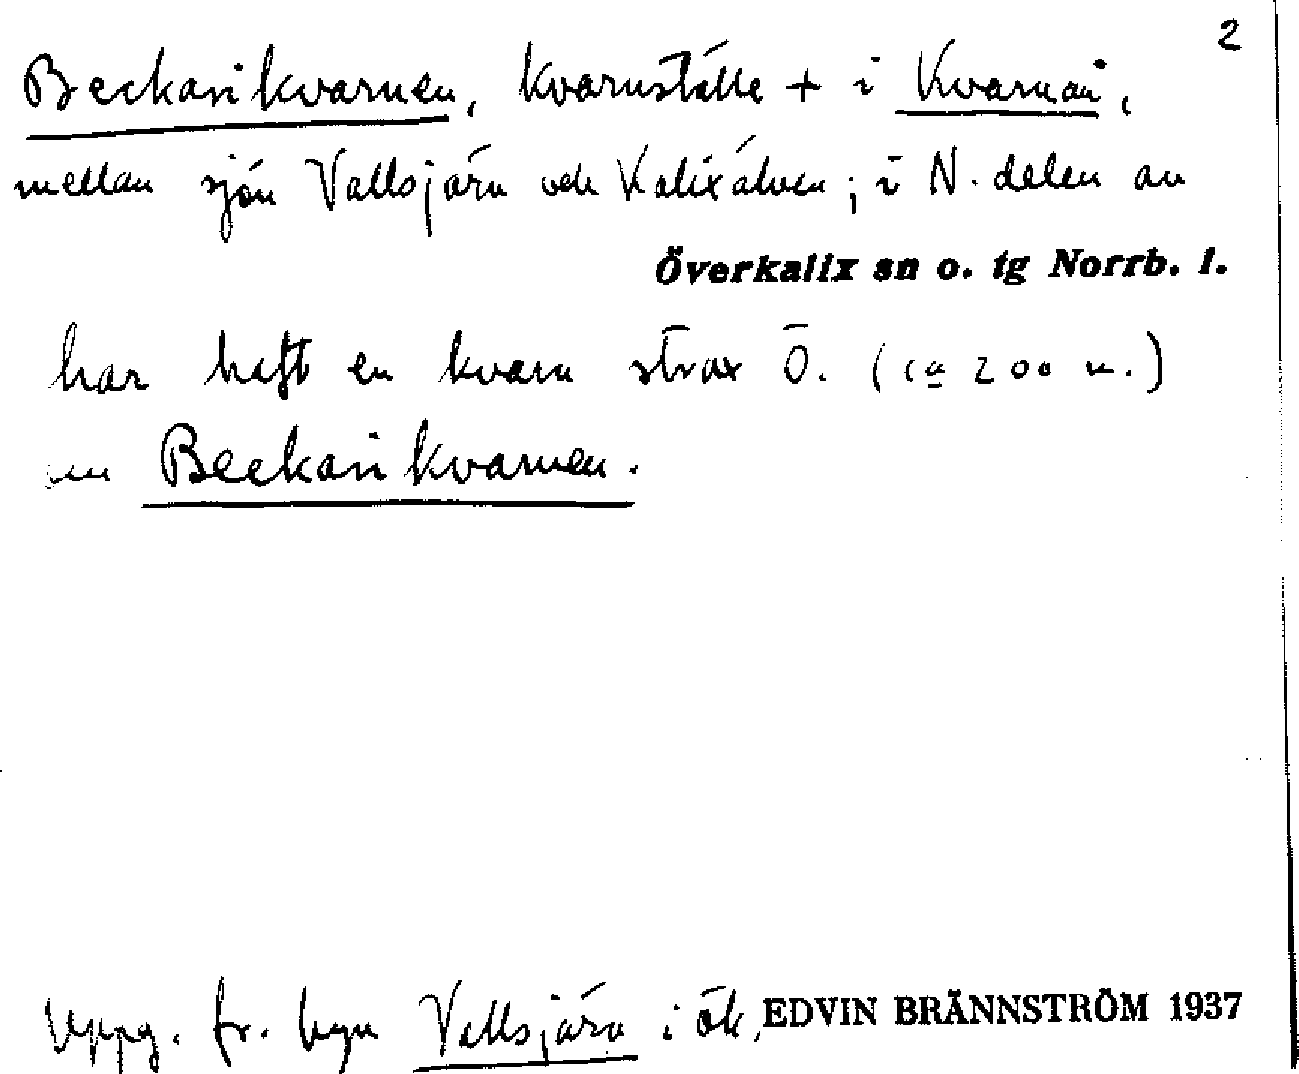 2
Beckarikvarnen, kvarnställe + i Kvarnån,
mellan sjön Vallsjärv och Kalixälven; i N. delen av
Överkalix sn o. tg Norrb. l.
har haft en kvarn strax Ö. (ca 200 m.)
om Beckarikvarnen.
Uppg. fr. byn Vallsjärv i Ök, EDVIN BRÄNNSTRÖM 1937